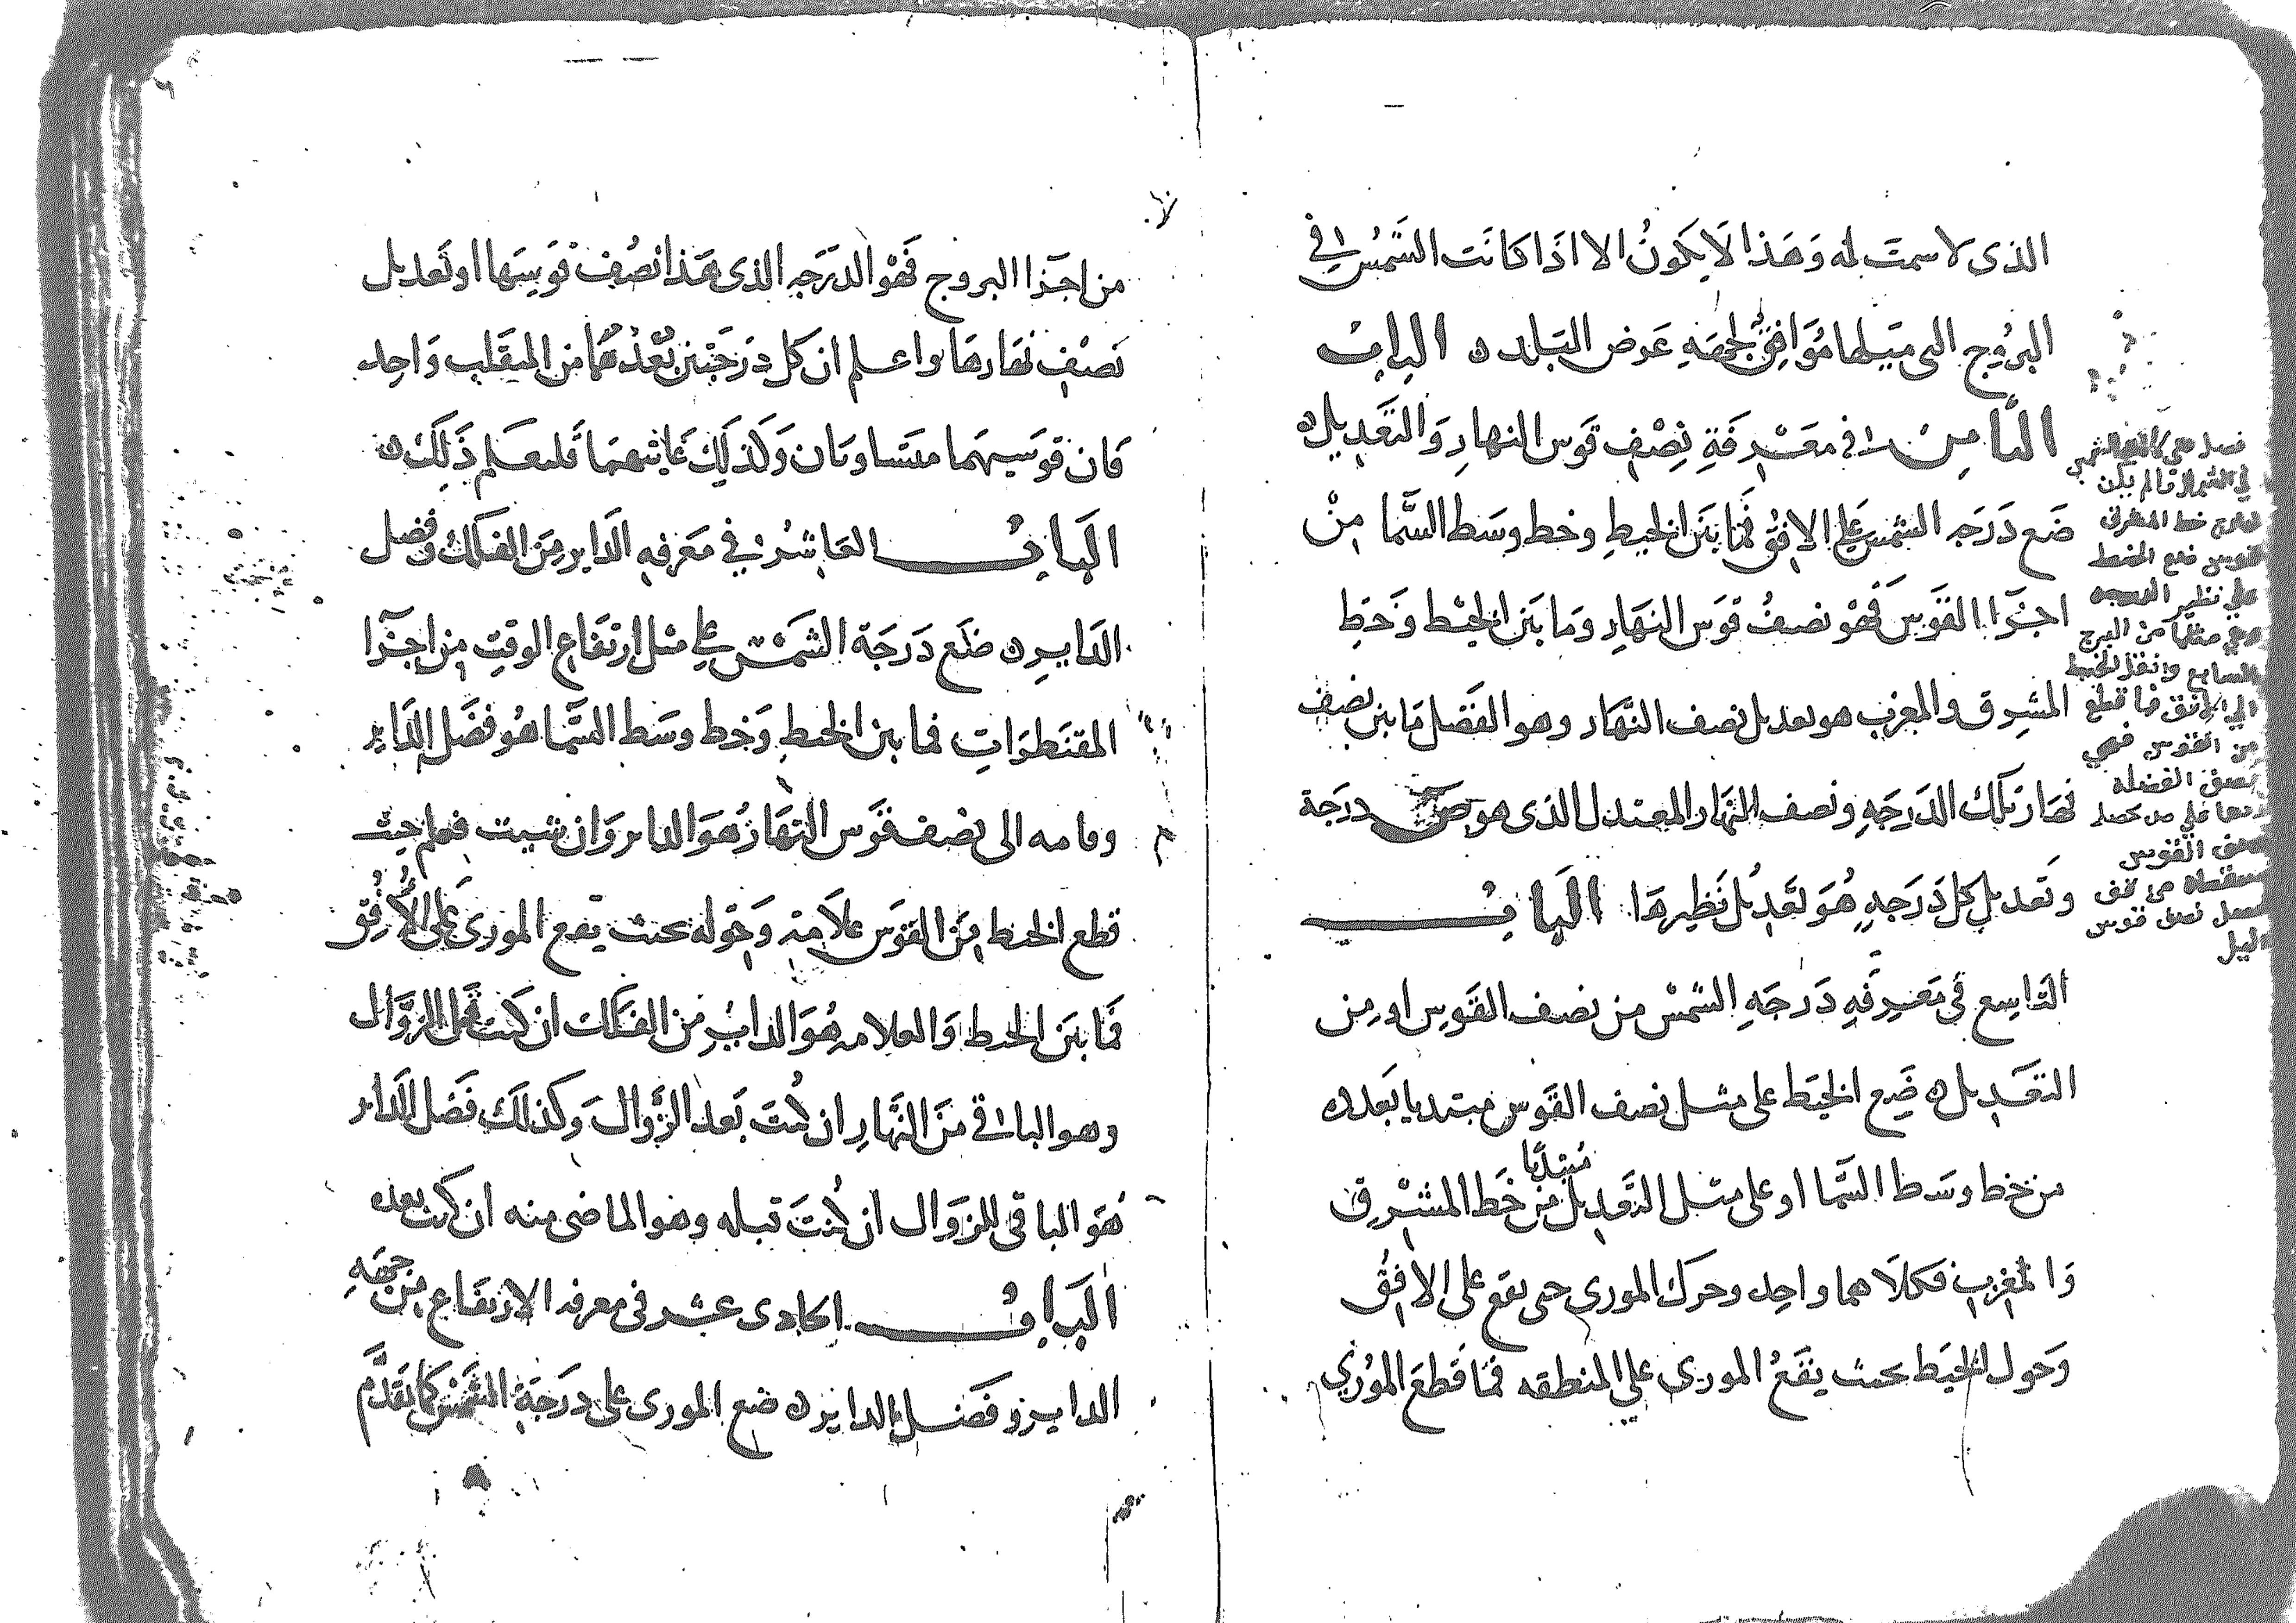 الذى لا سمت له وَهَذا لَا يكونُ الا اذَا كانَت الشمس فى
البرُوج التى ميلها مُوَافِق لجهَةِ عَرض البَلد ه البابُ
الثامِنُ فى معْرفَةِ نِصْفِ قوَس النهارِ وَالتعَدِيل ه
ضَع دَرَجَه الشمس عَلى الافِق فمَا بَيَن الخيطِ وخط وسَط السَّما مِنْ
اجزَا القوَس فهوَ نصفُ قوَس النهَارِ وَمَا بَيَن الخيْط وَخَط
المشرِق والمغرب هو تعديل نصف النهَار وهو الفَضل مَا بين نصف
نهَار تلك الدَرجَهِ ونصف النهَار المعتدل الذى هو ص درجَة
وتَعديل كل دَرَجهٍ هُوَ تَعَدِيُل نَظِيرهَا البابُ
التاسِع فى مَعرفَهِ دَرجَهِ الشمْسِ من نصف القَوسِ او مِن
التعَديل ه ضَع الخيَط على مثل نصف القَوس مبتديا بَعدده
من خط وسَط السَّما او على مثل التَّعَدِيل مبتديًا من خَط المشْرِق
وَالمغرِب فكلَاهما واحِد وحرك المورى حتى يقع على الافِقُ
وَحول الخيَط بحيث يَقَعُ المورى على المنطقه فمَا قَطعَ المُورى
فصل متى كانت الشمس
فى الشمال ولم يكن
خارج خط المشرق
قوس فضع الخيط
على نظير الدرجه
وهى مثلها من البرج
السابع وانقل الخيط
الى الافق فما قطع
من القوس فهى
نصف الفضله
زدها على ص تحصل
نصف القوس
انقصها من قف
يحصل نصف قوس
الليل
من اجَزا البروج فَهوَ الدَرَجه الذى هَذا نصُف قوَسهَا او تَعديل
نصْفِ نهَارهَا واعلم ان كل دَرَجَتيَن بُعْدُهُمَا من المنقَلب وَاحِد
فَان قوَسيهمَا متسَاويَان وَكَذلَك غايتهمَا فليعلم ذَلِك ه
البَابُ العَاشر فى معَرفهِ الدَاير مِنَ الفلك وفضل
الدَاير ه ضَع دَرَجَة الشَمْسِ على مثل ارتفَاع الوقتِ مِن اجزَا
المقنطرَاتِ فما بين الخيط وَخط وسَط السَّما هوُ فضَل الدَاير
ومامه الى نصف قوَس النهَار هُوَ الداير وَان شيت فعلم حيث
قطع الخيط مِنَ القوَس علَامة وَحَوله بحيث يقع المورى عَلى الافِق
فمَا بيَن الخيط وَالعلامه هُوَ الدايُر مِنَ الفَلك ان كنت قبل الزَّوَال
وهو الباقى مِنَ النهَارِ ان كُنتَ بَعَد الزَّوال وَكذلكَ فضَل الدَاير
هُوَ الباقى للزوَال ان كُنتَ قبله وهوَ الماضى منه ان كنت بعده
البَابُ الحادى عشر فى معرفه الارتفَاع مِن جهَهِ
الداير وفَضل الداير ه ضع المورى على درَجَة الشمس كما تقَدَّم